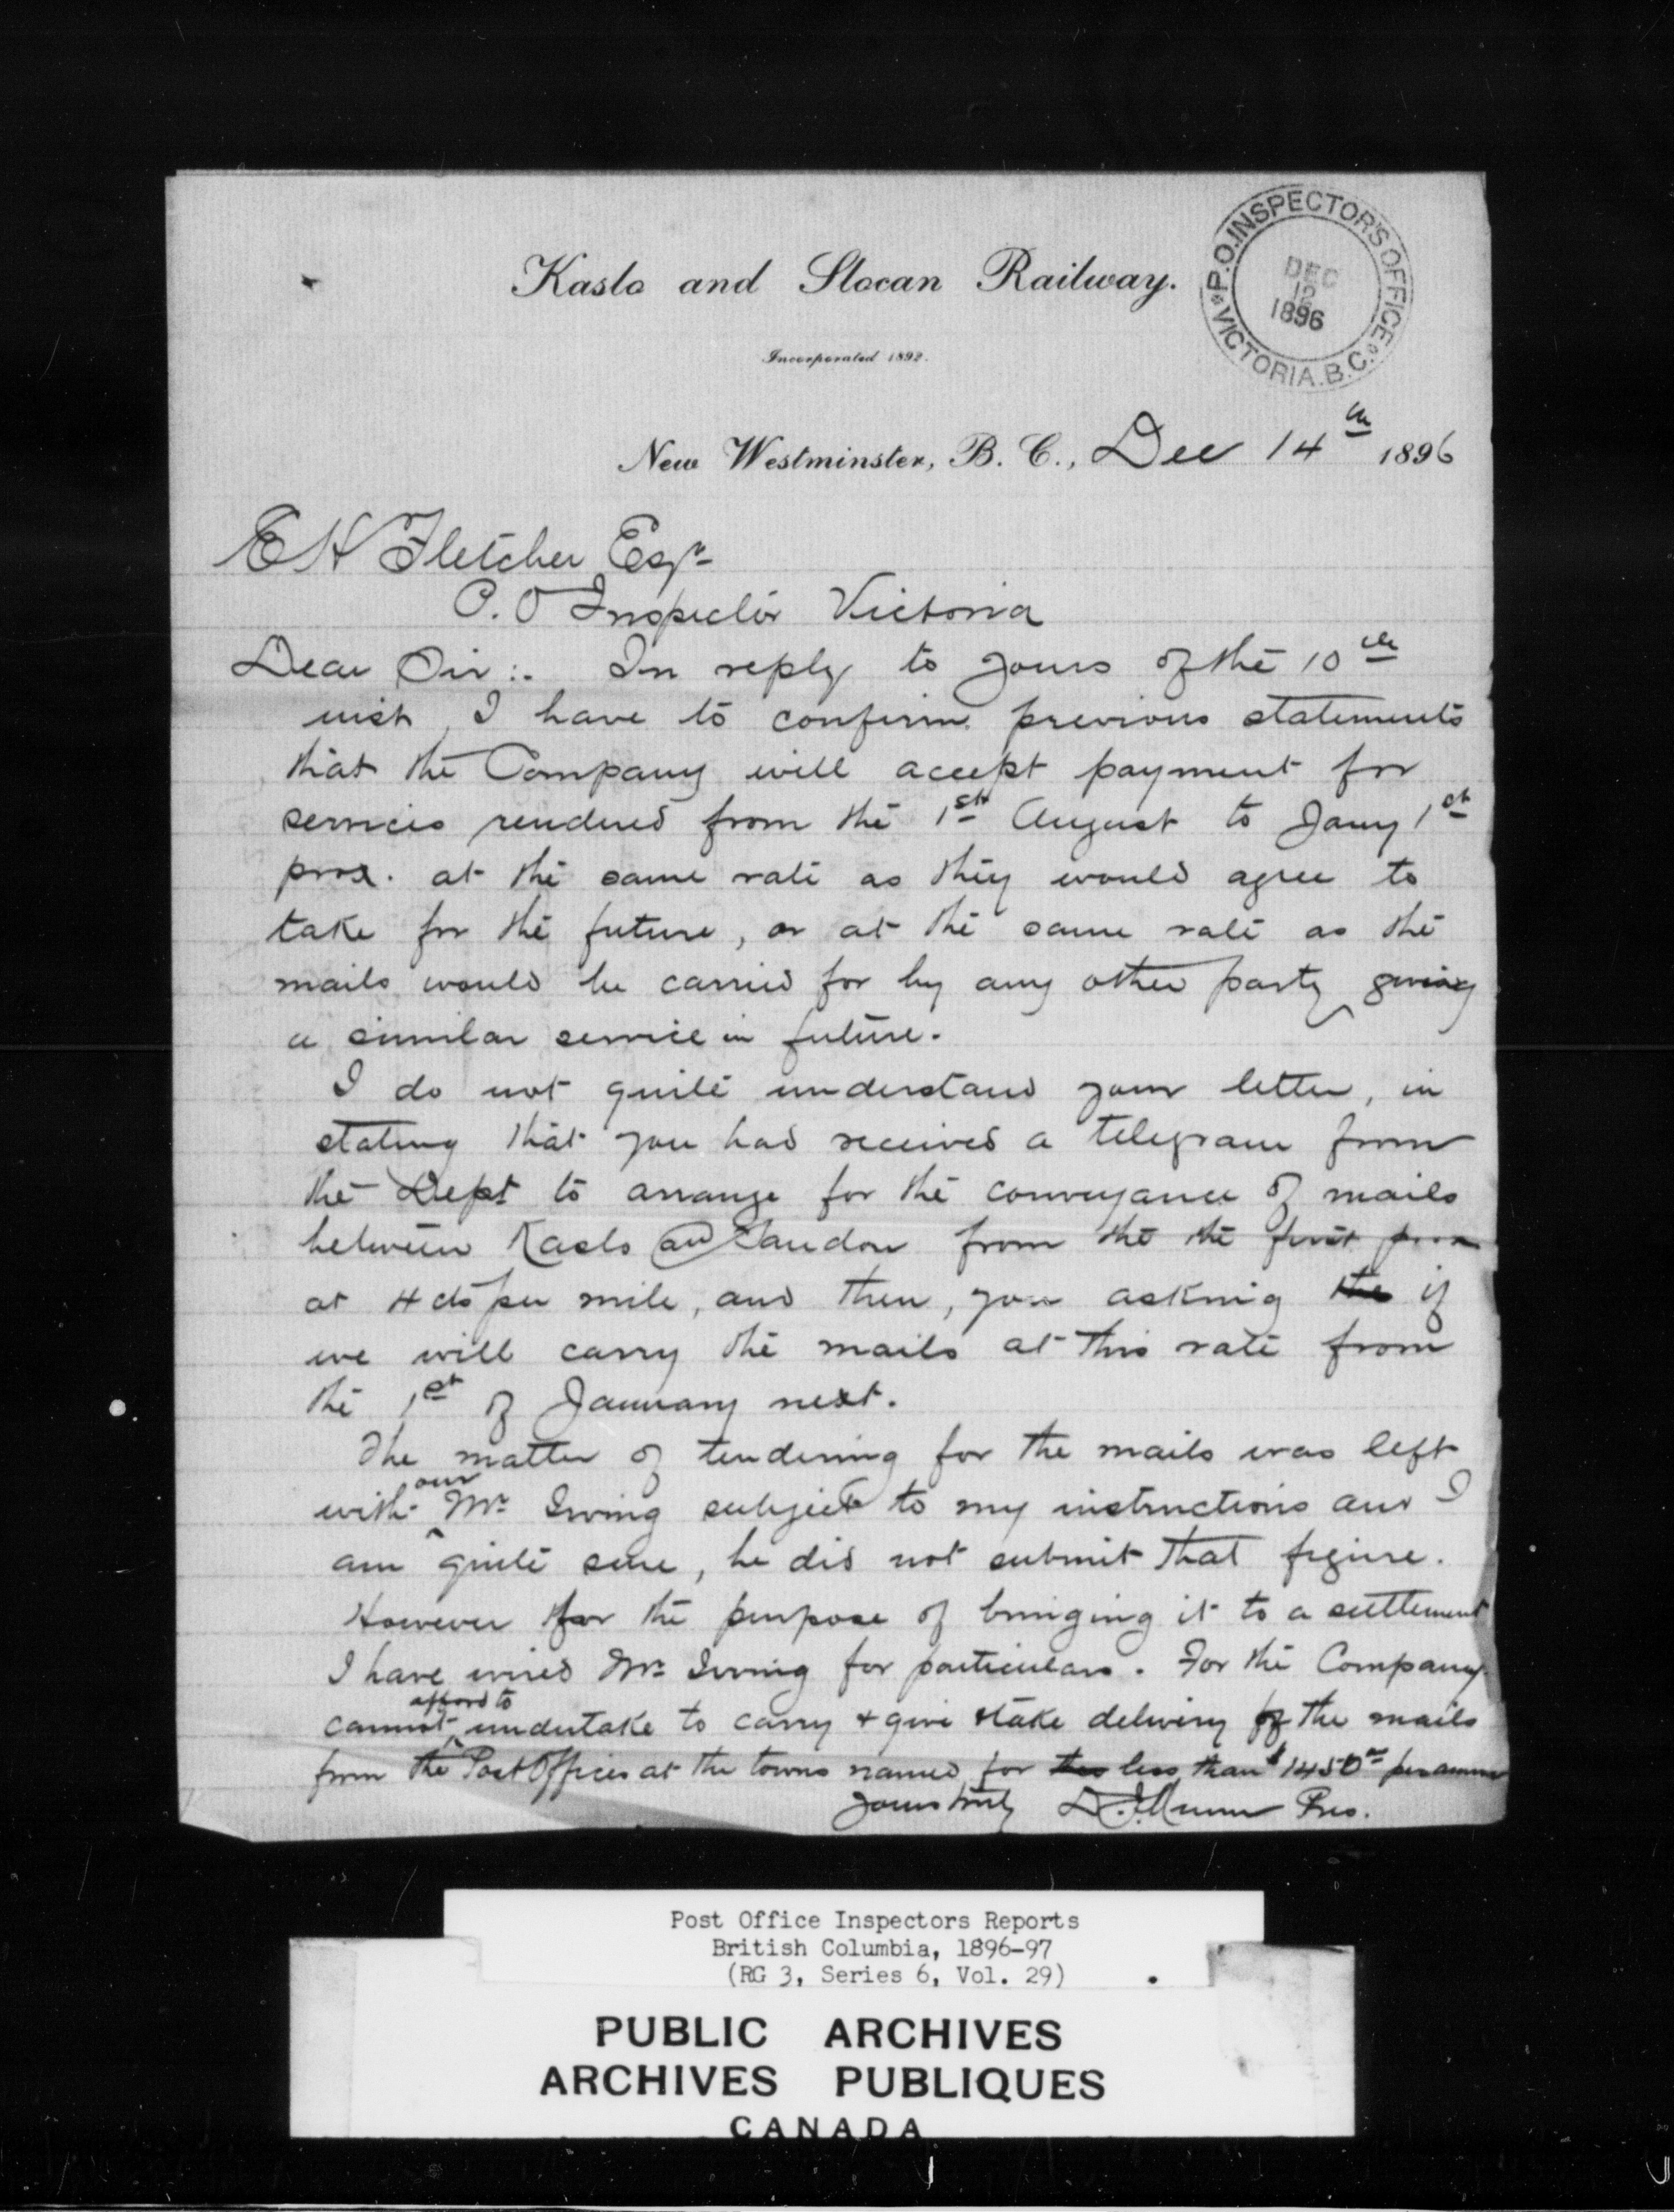 Kaslo and Slocan Railway.
Incorporated 1892.
P.O. INSPECTOR'S OFFICE
VICTORIA. B.C.
DEC
12
1896
New Westminster, B. C., Dec 14th 1896
E H Fletcher Esqr
P. O Inspector Victoria
Dear Sir:. In reply to yours of the 10th
inst, I have to confirm previous statements
that the Company will accept payment for
services rendered from the 1st August to Jany 1st
prox. at the same rate as they would agree to
take for the future, or at the same rate as the
mails would be carried for by any other party giving
a similar service in future.
I do not quite understand your letter, in
stating that you had received a telegram from
the Dept to arrange for the conveyance of mails
between Kaslo and Sandon from the the first
at 4 cts per mile, and then, you asking the if
we will carry the mails at this rate from
the 1st of January next.
The matter of tendering for the mails was left
with our Mr Irving subject to my instructions and I
am quite sure, he did not submit that figure.
However for the purpose of bringing it to a settlement
I have wired Mr Irving for particulars. For the Company
cannot afford to undertake to carry & give & take delivery of the mails
from the Post Offices at the towns named for less than $1450 per annum
Yours truly D. J. Munn Pres.
Post Office Inspectors Reports
British Columbia, 1896-97
(RG 3, Series 6, Vol. 29)
PUBLIC ARCHIVES
ARCHIVES PUBLIQUES
CANADA